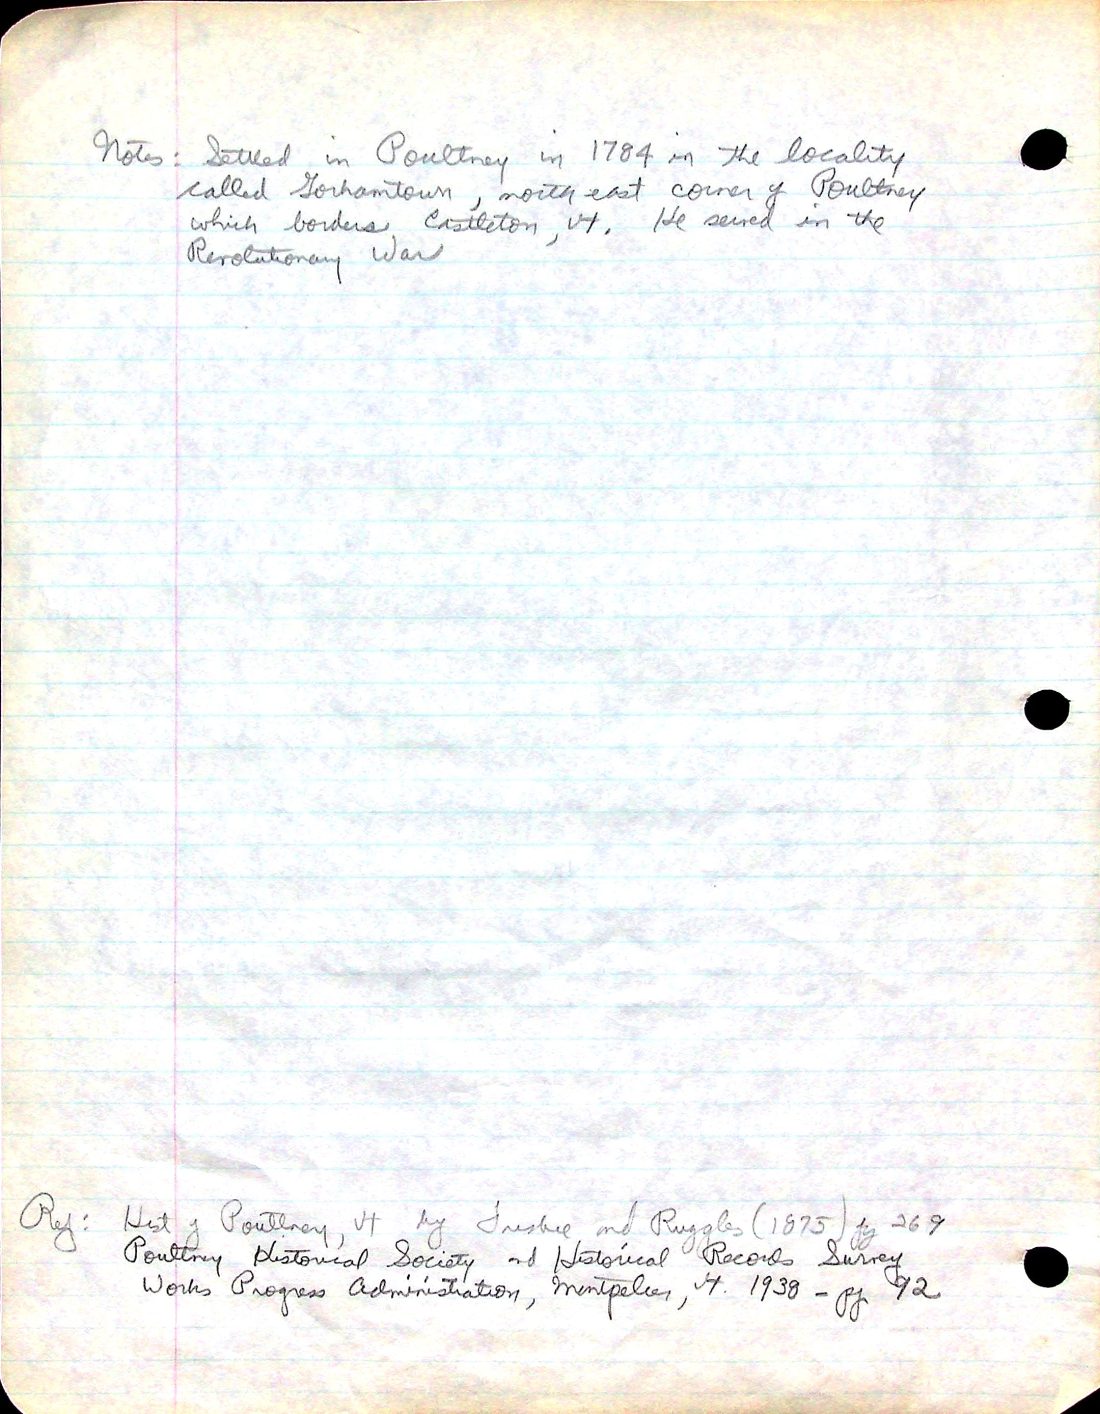 Notes: Settled in Poultney in 1784 in the locality
called Gorhamtown, north east corner of Poultney
which borders Castleton, Vt. He served in the
Revolutionary War
Ref: Hist of Poultney, Vt by Frisbie and Ruggles (1875) pg 269
Poultney Historical Society and Historical Records Survey
Works Progress Administration, Montpelier, Vt. 1938 - pg 92